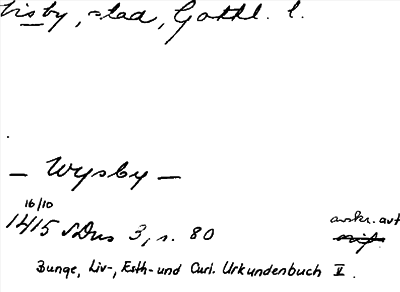 Visby, stad, Gottl. l.
– Wysby –
16/10
1415 SDns 3, s. 80
avskr. avt
orig.
Bunge, Liv-, Esth- und Curl. Urkundenbuch V.